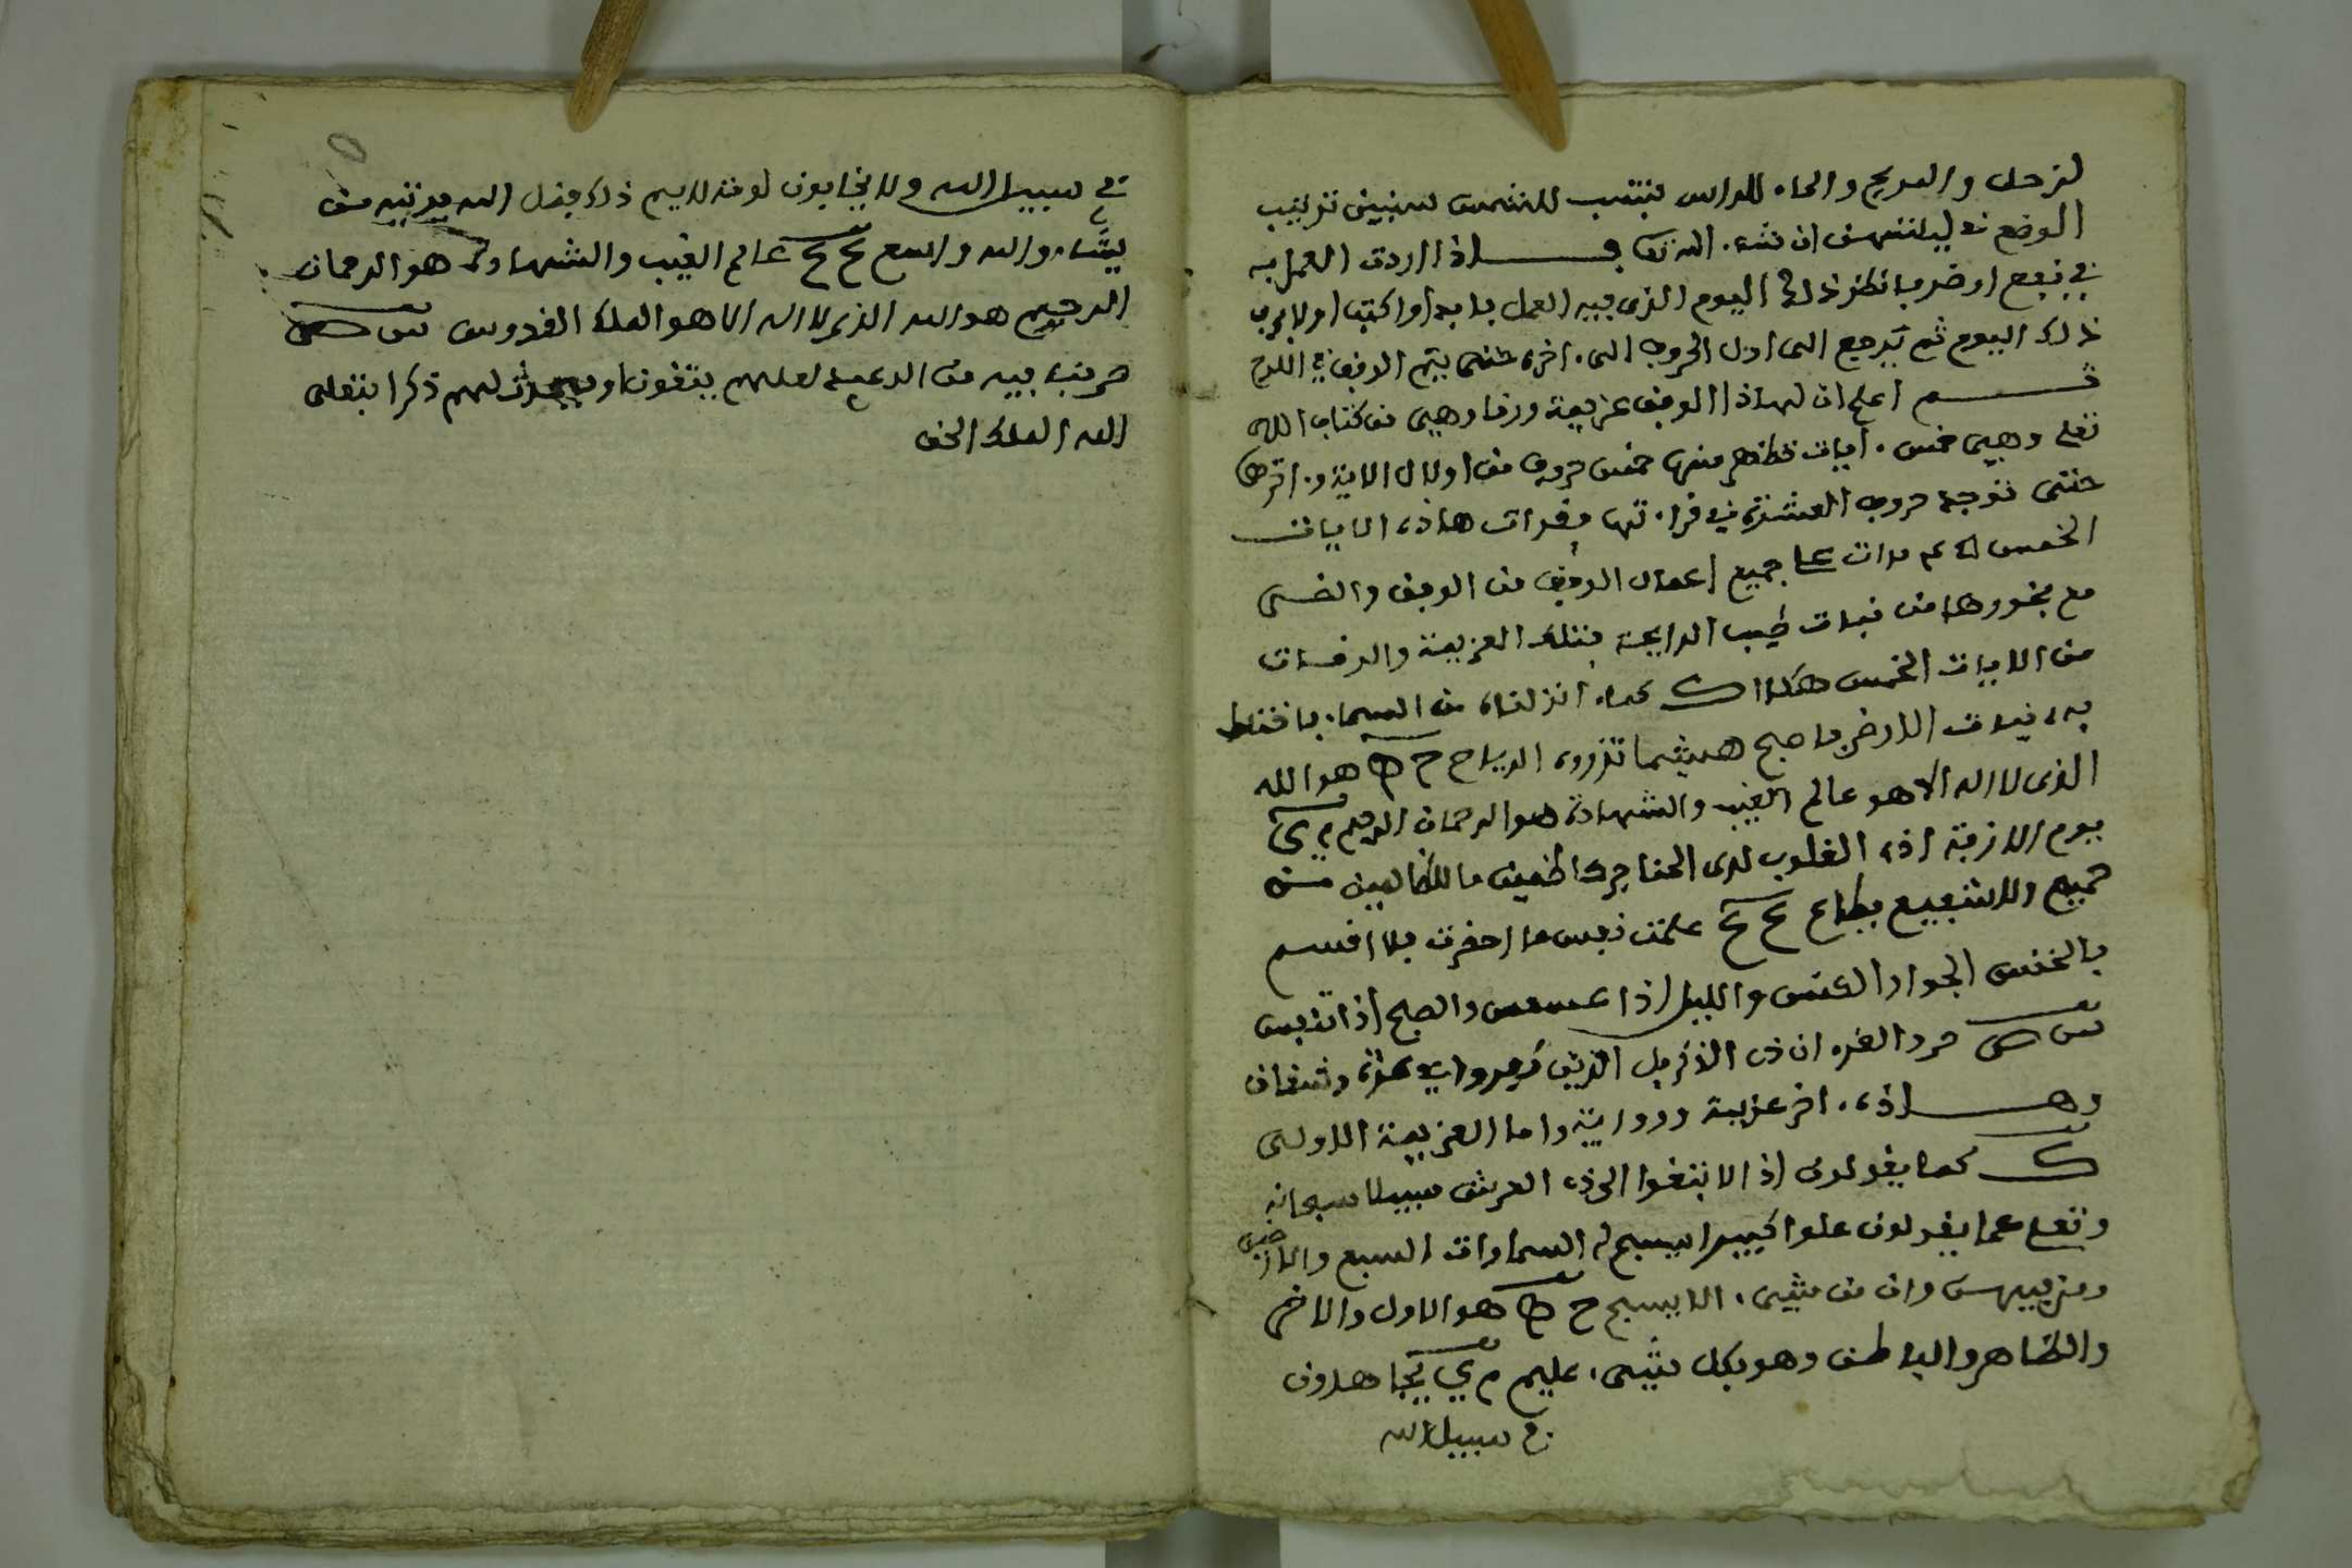 لزحل والمريح والماء للراس تنتسب للشمس
الوضع ان شاء الله اذا اردت العمل به
في نفع او ضر فانظر ذالك اليوم الذي فيه العمل فابدا واكتب اولا
ذلك اليوم ثم ترجع الى اول الحروف الى اخره حتى يتم الوفق في اللوح
قسم اعلم ان لهاذا الوفق عزيمة وهي من كتاب الله
تعلى وهي خمس ايات تظهر منها خمس حروف من اول الاية
حتى توجد حروف في قراءتها وقرات هاذه الايات
الخمس مرات على جميع اعمال الوفق من الوفق والقسم
مع بخورها من نبات طيب الرايحة بتلك العزيمة
من الايات الخمس هكذا ك كماء انزلناه من السماء فاختلط
به نبات الارض فاصبح هشيما تذروه الرياح ح ه هو الله
الذي لا اله الا هو عالم الغيب والشهادة هو الرحمان الرحيم م ي
يوم الازفة اذ القلوب لدى الحناجر كاظمين ما للظالمين من
حميم ولا شفيع يطاع ع ع علمت نفس ما احضرت فلا اقسم
بالخنس الجوار الكنس والليل اذا عسعس والصبح اذا تنفس
ص ص والقرءان ذي الذكر بل الذين كفروا في عزة وشقاق
وهاذه اخر عزيمة واما العزيمة الاولى
ك كما يقولون اذا لابتغوا الى ذي العرش سبيلا سبحانه
وتعلى عما يقولون علوا كبيرا يسبح له السماوات السبع والارض
ومن فيهن وان من شيء الا يسبح ح ه هو الاول والاخر
والظاهر والباطن وهو بكل شيء عليم م ي يجاهدون
في سبيل الله
في سبيل الله ولا يخافون لومة لايم ذلك فضل الله يوتيه من
يشاء والله واسع ع ع عالم الغيب والشهادة هو الرحمان
الرحيم هو الله الذي لا اله الا هو الملك القدوس ص ص
صرفنا فيه من الوعيد لعلهم يتقون او يحدث لهم ذكرا فتعلى
الله الملك الحق